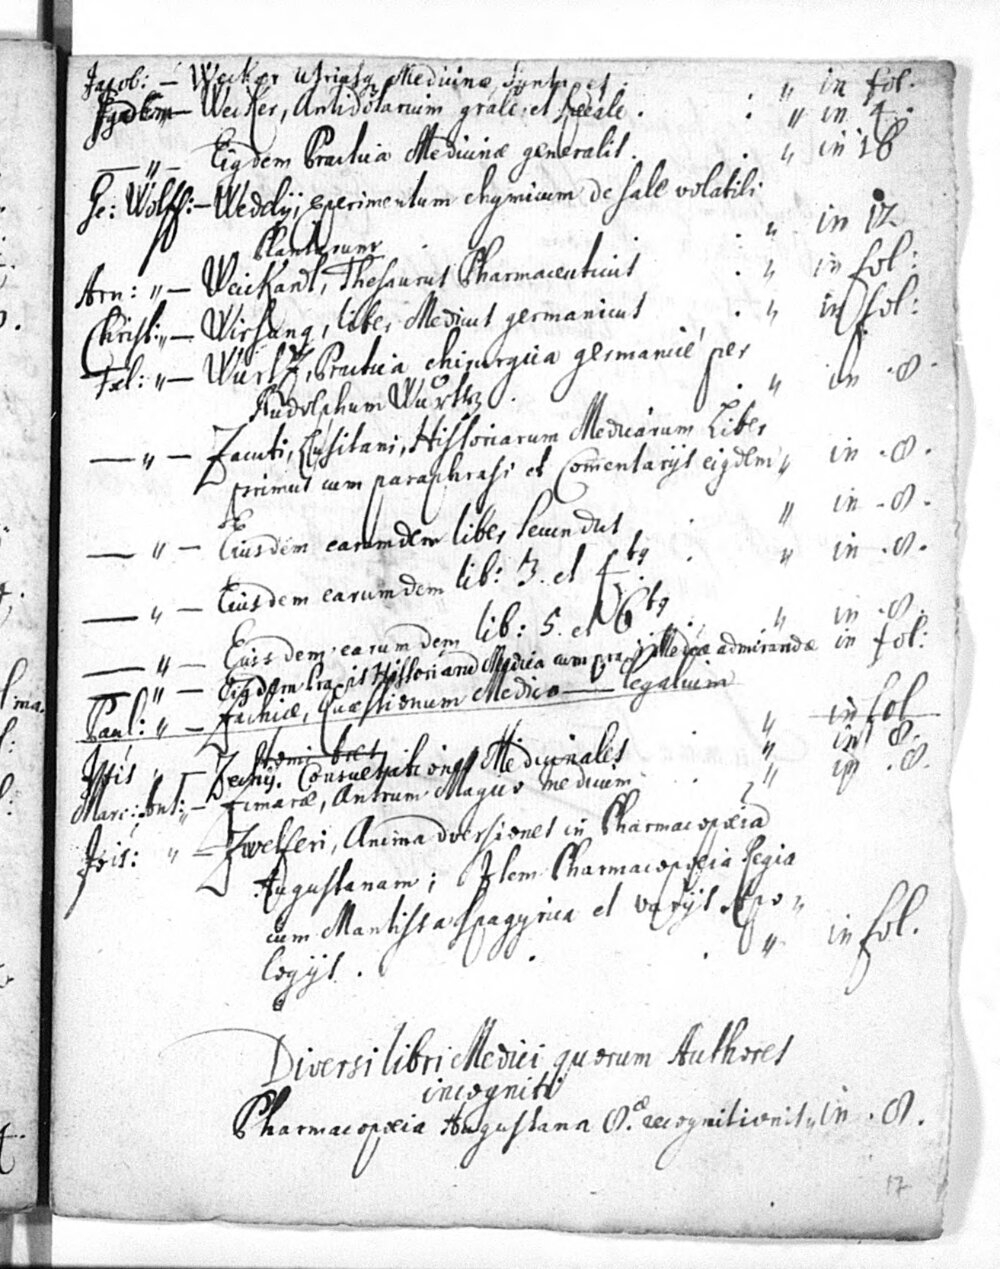 Jacob: — Wecker utriusq Medicinæ Syntax et . " in fol.
Ejusdem — Wecker, Antidotarium grale: et speale . . " in 4.
— " — Eiqdem Practica Medicinæ generalis. . " in 18
Ge: Wolff: — Wedelij, experimentum chymicum de sale volatili
Plantarum . . " in 12
Arn: " — Weickard, Thesaurus Pharmaceuticus . " in fol:
Christ: " — Wirsung, liber Medicus germanicus . " in fol:
Fæl: " — Würtz, Practica chirurgica germanicè per
Rudolphum Würtz . . " in .8.
— " — Zacuti, Lusitani, Historiarum Medicarum Liber
primus cum paraphrasi et Commentarijs eiqdem " in .8.
— " — Eiusdem earumdem liber secundus . " in .8.
— " — Eiusdem earumdem lib: 3. et 4tq . " in .8.
— " — Eiusdem earumdem lib: 5. et 6tq . " in .8.
— " — Eiqdem Praxis Historiarum Medica cum admirandæ in fol:
Paul: " — Zachiæ, Quæstionum Medico — legalium " in fol
Jois " — Zechij, Consultationes Medicinales . " in 8.
Marc: Ant: " — Zimaræ, Antrum Magico medicum . " in .8.
Jois: " — Zwelferi, Animadversiones in Pharmacopœia
Augustanam; Item Pharmacopœia Regia
cum Mantissa spagyrica et varijs Apo "
logijs . . . " in fol.
Diversi libri Medici quorum Authores
incogniti
Pharmacopœia Augustana 8.æ recognitionis " in .8.
17